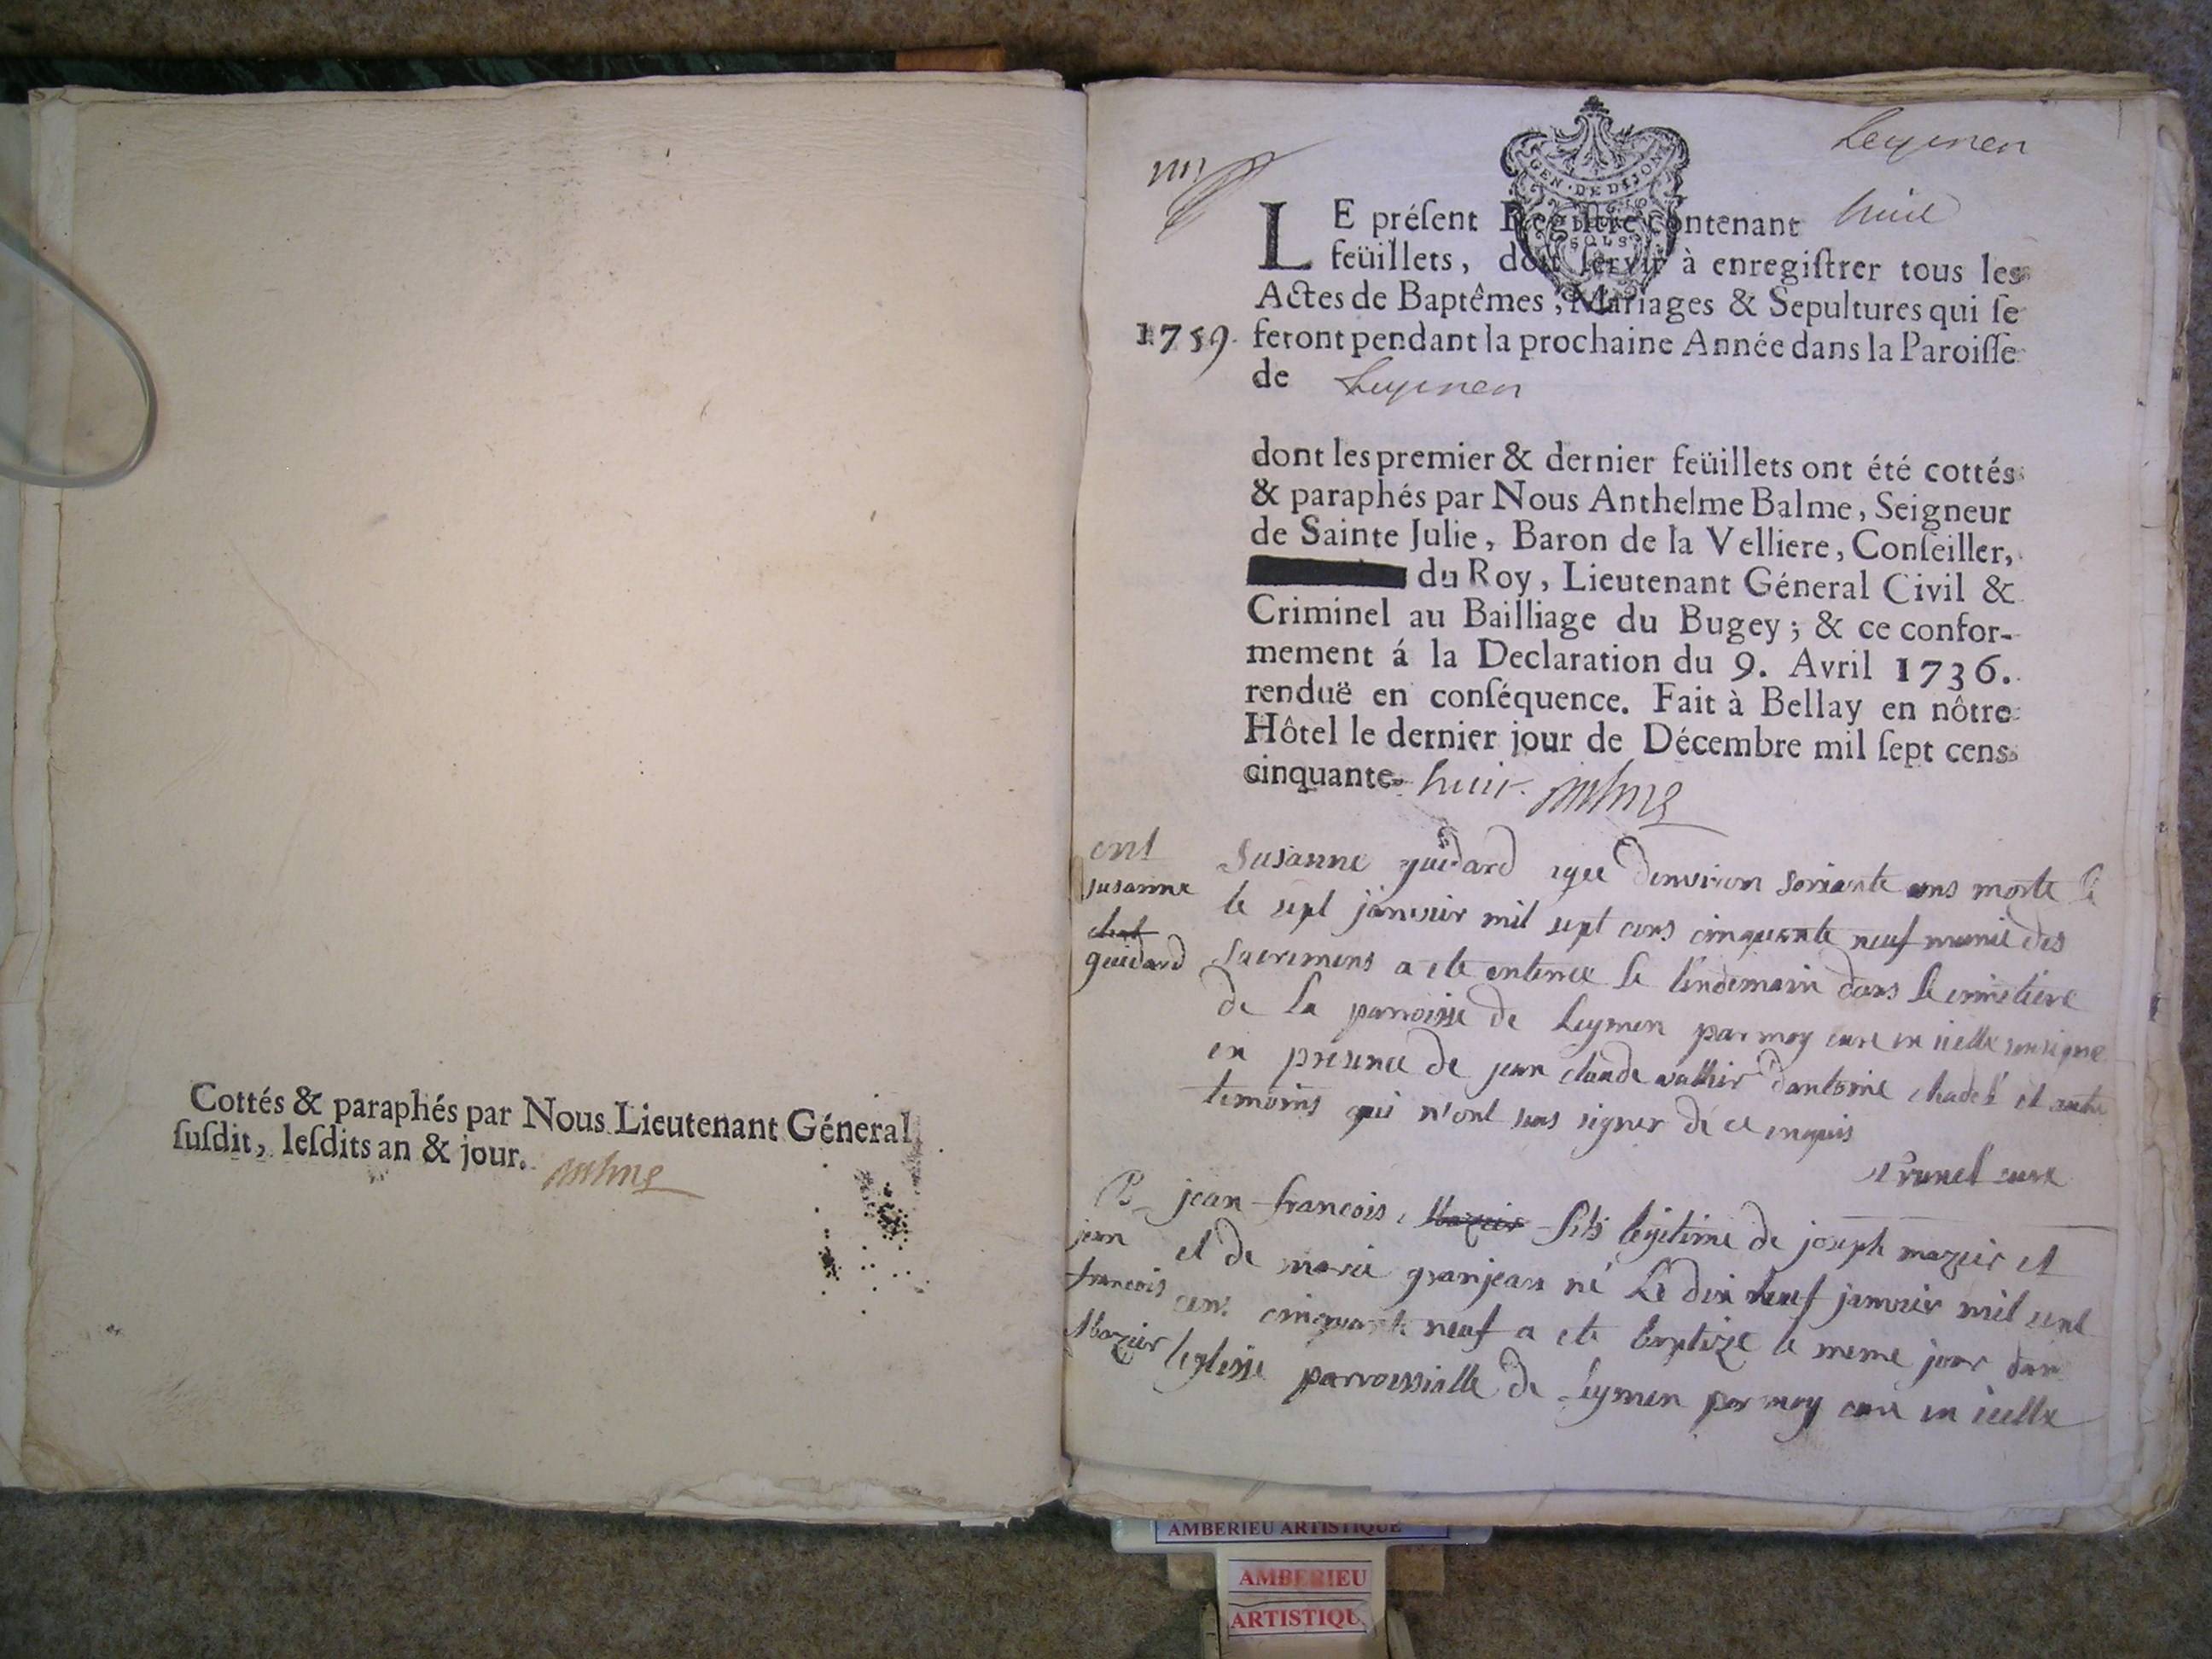 Cottés & paraphés par Nous Lieutenant Géneral
ſuſdit, leſdits an & jour.
Leymen
GEN · DE DIJON
SOLS
LE préſent Regiſtre contenant huit
feüillets, doit ſervir à enregiſtrer tous les
Actes de Baptêmes, Mariages & Sepultures qui ſe
1759. feront pendant la prochaine Année dans la Paroiſſe
de Leymen
dont les premier & dernier feüillets ont été cottés
& paraphés par Nous Anthelme Balme, Seigneur
de Sainte Julie, Baron de la Velliere, Conſeiller,
du Roy, Lieutenant Géneral Civil &
Criminel au Bailliage du Bugey; & ce confor-
mement á la Declaration du 9. Avril 1736.
renduë en conſéquence. Fait à Bellay en nôtre
Hôtel le dernier jour de Décembre mil ſept cens
cinquante- huit.
ent
susanne
guidard
Susanne guidard agee denviron soixante ans morte
le sept janvier mil sept cens cinquante neuf munie des
sacremens a ete enterree le lendemain dans le cimetiere
de la parroisse de Leymen par moy cure en icelle soussigne
en presence de jean claude vallier dantoine chadel et autre
temoins qui n'ont sus signer de ce enquis
Brunet cure
B
jean
francois
Mazuir
jean francois fils legitime de joseph mazuir et
et de marie granjean né Le dix neuf janvier mil sept
cens cinquante neuf a ete baptize le meme jour dans
leglisse parroissialle de Leymen par moy cure en icelle
AMBERIEU ARTISTIQUE
AMBERIEU
ARTISTIQU